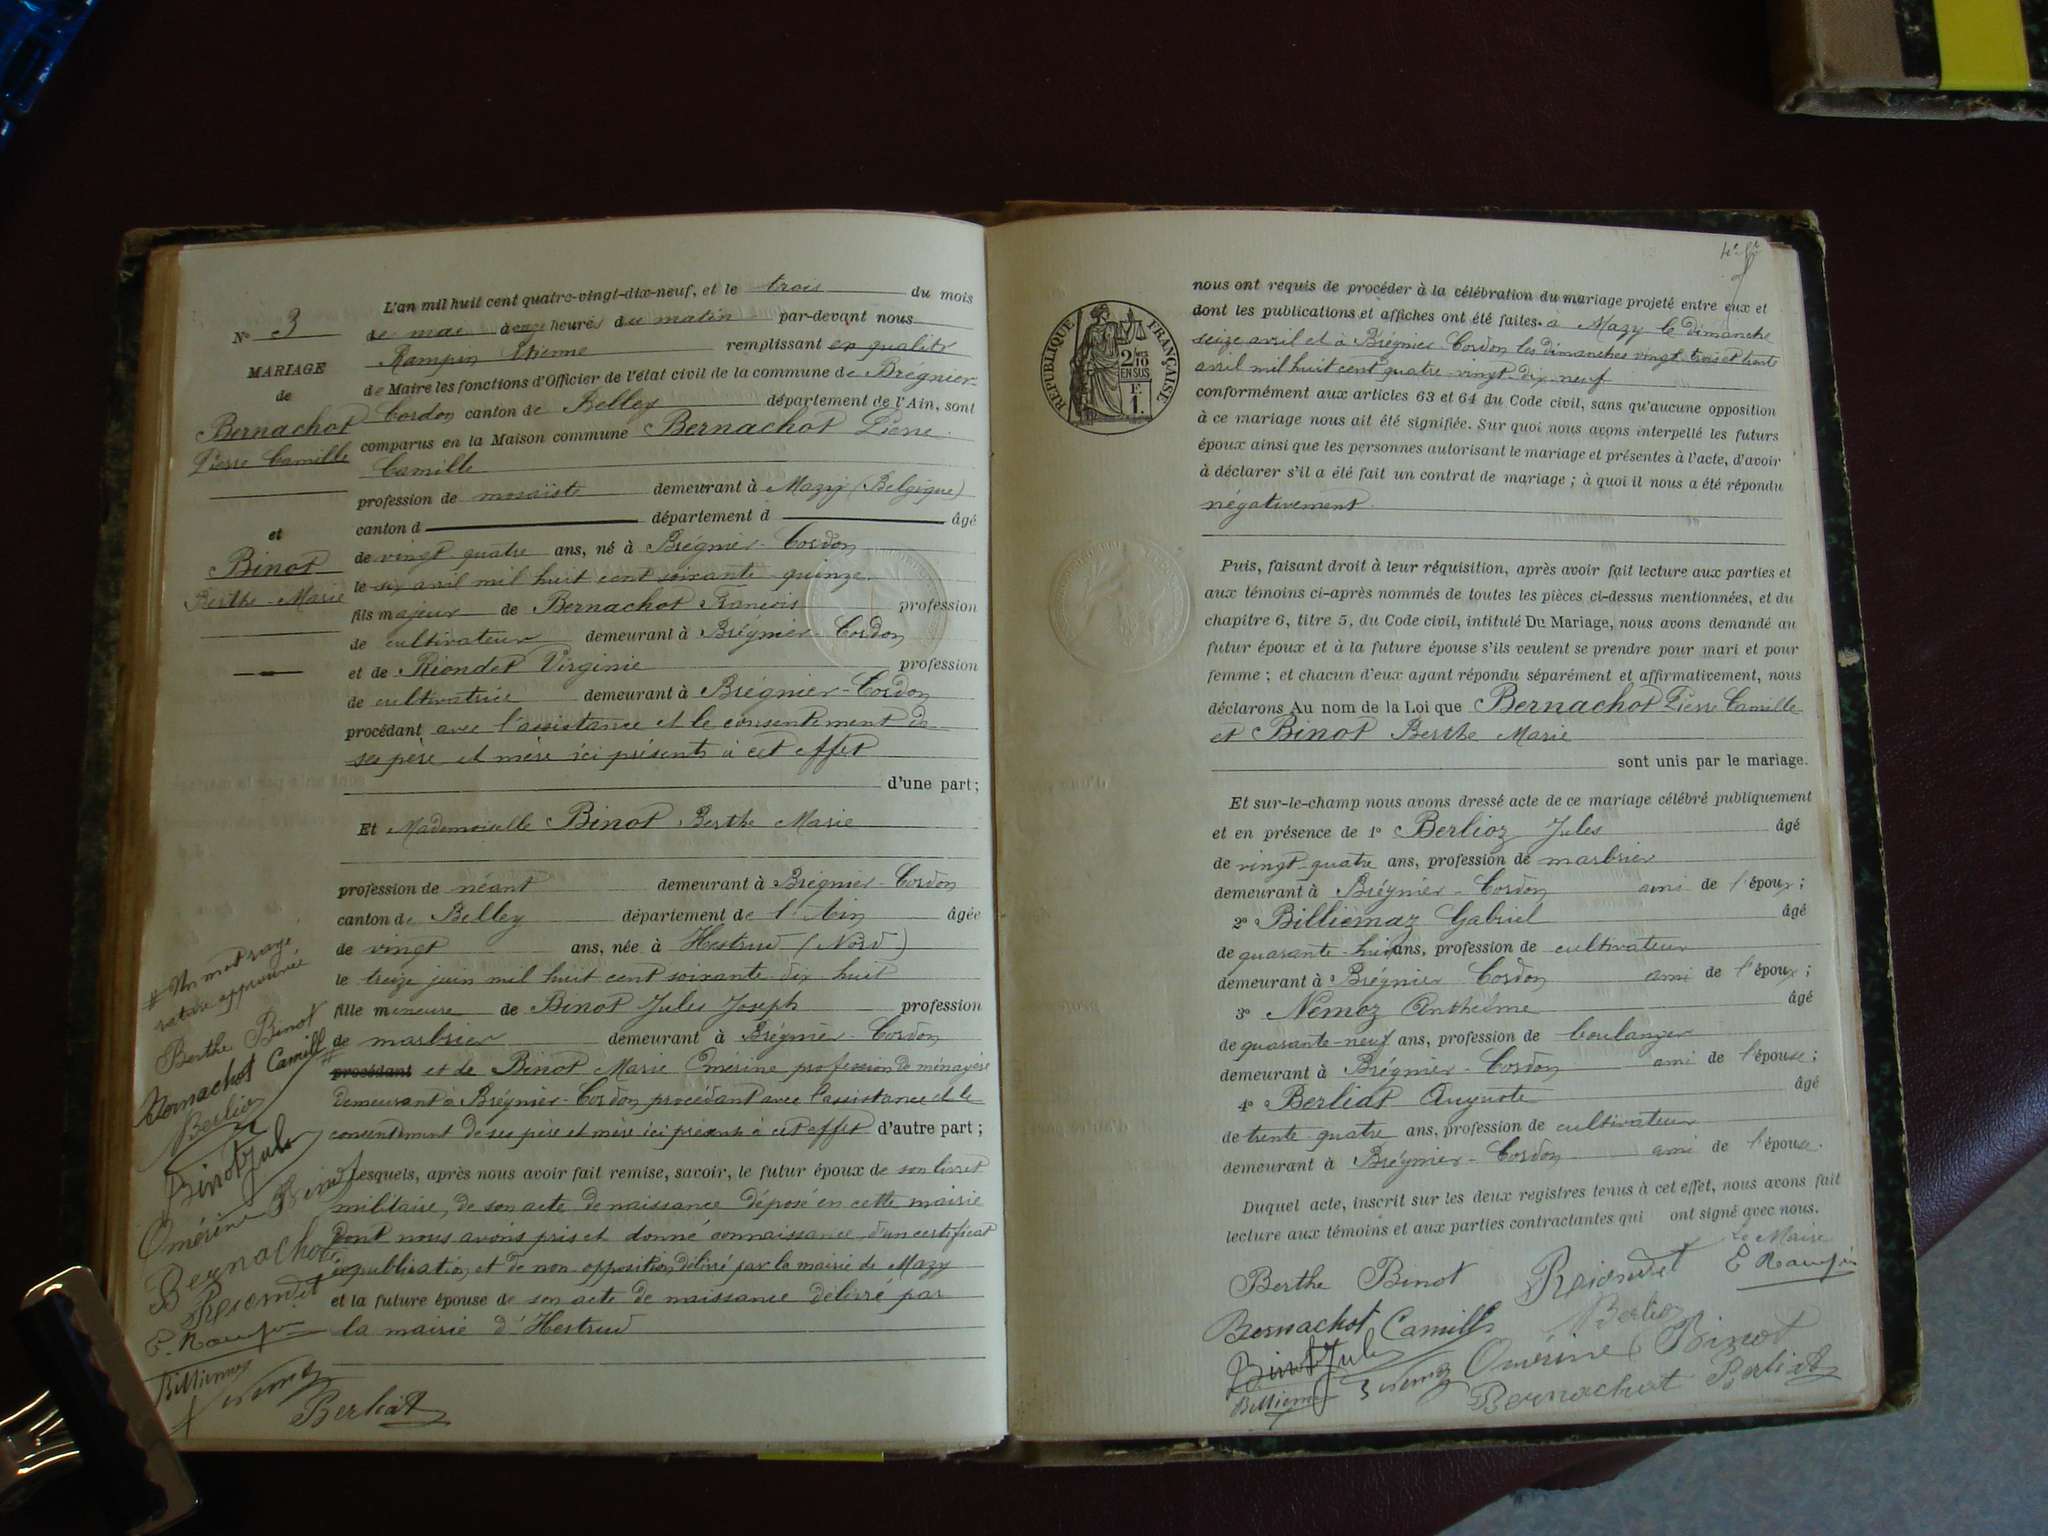 L'an mil huit cent quatre-vingt-dix-neuf, et le trois du mois
N° 3
de mai à onze heures du matin par-devant nous
Rampin Etienne remplissant en qualité
MARIAGE
de Maire les fonctions d'Officier de l'état civil de la commune de Bregnier-
de
Cordon canton de Belley département de l'Ain, sont
Bernachot
comparus en la Maison commune Bernachot Pierre
Pierre Camille
Camille
profession de mosaïste demeurant à Mazy (Belgique)
canton d département d âgé
et
de vingt quatre ans, né à Brégnier-Cordon
Binot
le six avril mil huit cent soixante quinze.
Berthe-Marie
fils majeur de Bernachot Francois profession
de cultivateur demeurant à Brégnier-Cordon
et de Riondet Virginie profession
de cultivatrice demeurant à Brégnier-Cordon
procédant avec l'assistance et le consentement de
ses père et mère ici présents à cet effet
d'une part;
Et Mademoiselle Binot Berthe Marie
profession de néant demeurant à Brégnier-Cordon
canton de Belley département de l'Ain âgée
de vingt ans, née à Hestrud (Nord)
le treize juin mil huit cent soixante dix huit
fille mineure de Binot Jules Joseph profession
de marbrier demeurant à Brégnier-Cordon
procédant et de Binot Marie Omérine profession de ménagère
demeurant à Brégnier-Cordon procédant avec l'assistance et le
consentement de ses père et mère ici présents à cet effet d'autre part;
Lesquels, après nous avoir fait remise, savoir, le futur époux de son livret
militaire, de son acte de naissance déposé en cette mairie
dont nous avons pris et donné connaissance d'un certificat
de publication et de non opposition délivré par la mairie de Mazy
et la future épouse de son acte de naissance délivré par
la mairie d'Hestrud
# Un mot rayé
rature approuvée
Berthe Binot
Bernachot Camill
Berlioz
Binot Jules
Omérine Binot
Bernachot
Reiondet
E. Rampin
Billiemaz
Nemoz
Berliat
RÉPUBLIQUE FRANÇAISE
2/10
EN SUS
F.
1.
nous ont requis de procéder à la célébration du mariage projeté entre eux et
dont les publications et affiches ont été faites à Mazy le dimanche
seize avril et à Brégnier-Cordon les dimanches vingt trois et trente
avril mil huit cent quatre-vingt-dix-neuf
conformément aux articles 63 et 64 du Code civil, sans qu'aucune opposition
à ce mariage nous ait été signifiée. Sur quoi nous avons interpellé les futurs
époux ainsi que les personnes autorisant le mariage et présentes à l'acte, d'avoir
à déclarer s'il a été fait un contrat de mariage; à quoi il nous a été répondu
négativement.
Puis, faisant droit à leur réquisition, après avoir fait lecture aux parties et
aux témoins ci-après nommés de toutes les pièces ci-dessus mentionnées, et du
chapitre 6, titre 5, du Code civil, intitulé Du Mariage, nous avons demandé au
futur époux et à la future épouse s'ils veulent se prendre pour mari et pour
femme; et chacun d'eux ayant répondu séparément et affirmativement, nous
déclarons Au nom de la Loi que Bernachot Pierre Camille
et Binot Berthe Marie
sont unis par le mariage.
Et sur-le-champ nous avons dressé acte de ce mariage célébré publiquement
et en présence de 1° Berlioz Jules âgé
de vingt-quatre ans, profession de marbrier
demeurant à Brégnier-Cordon ami de l'époux;
2° Billiemaz Gabriel âgé
de quarante-huit ans, profession de cultivateur
demeurant à Brégnier Cordon ami de l'époux;
3° Nemoz Anthelme âgé
de quarante-neuf ans, profession de boulanger
demeurant à Brégnier-Cordon ami de l'épouse;
4° Berliat Auguste âgé
de trente quatre ans, profession de cultivateur
demeurant à Brégnier-Cordon ami de l'épouse.
Duquel acte, inscrit sur les deux registres tenus à cet effet, nous avons fait
lecture aux témoins et aux parties contractantes qui ont signé avec nous.
Le Maire
Berthe Binot Reiondet E Rampin
Bernachot Camill Berlioz
Binot Jules Omérine Binot
Billiemaz Nemoz Bernachot Berliat